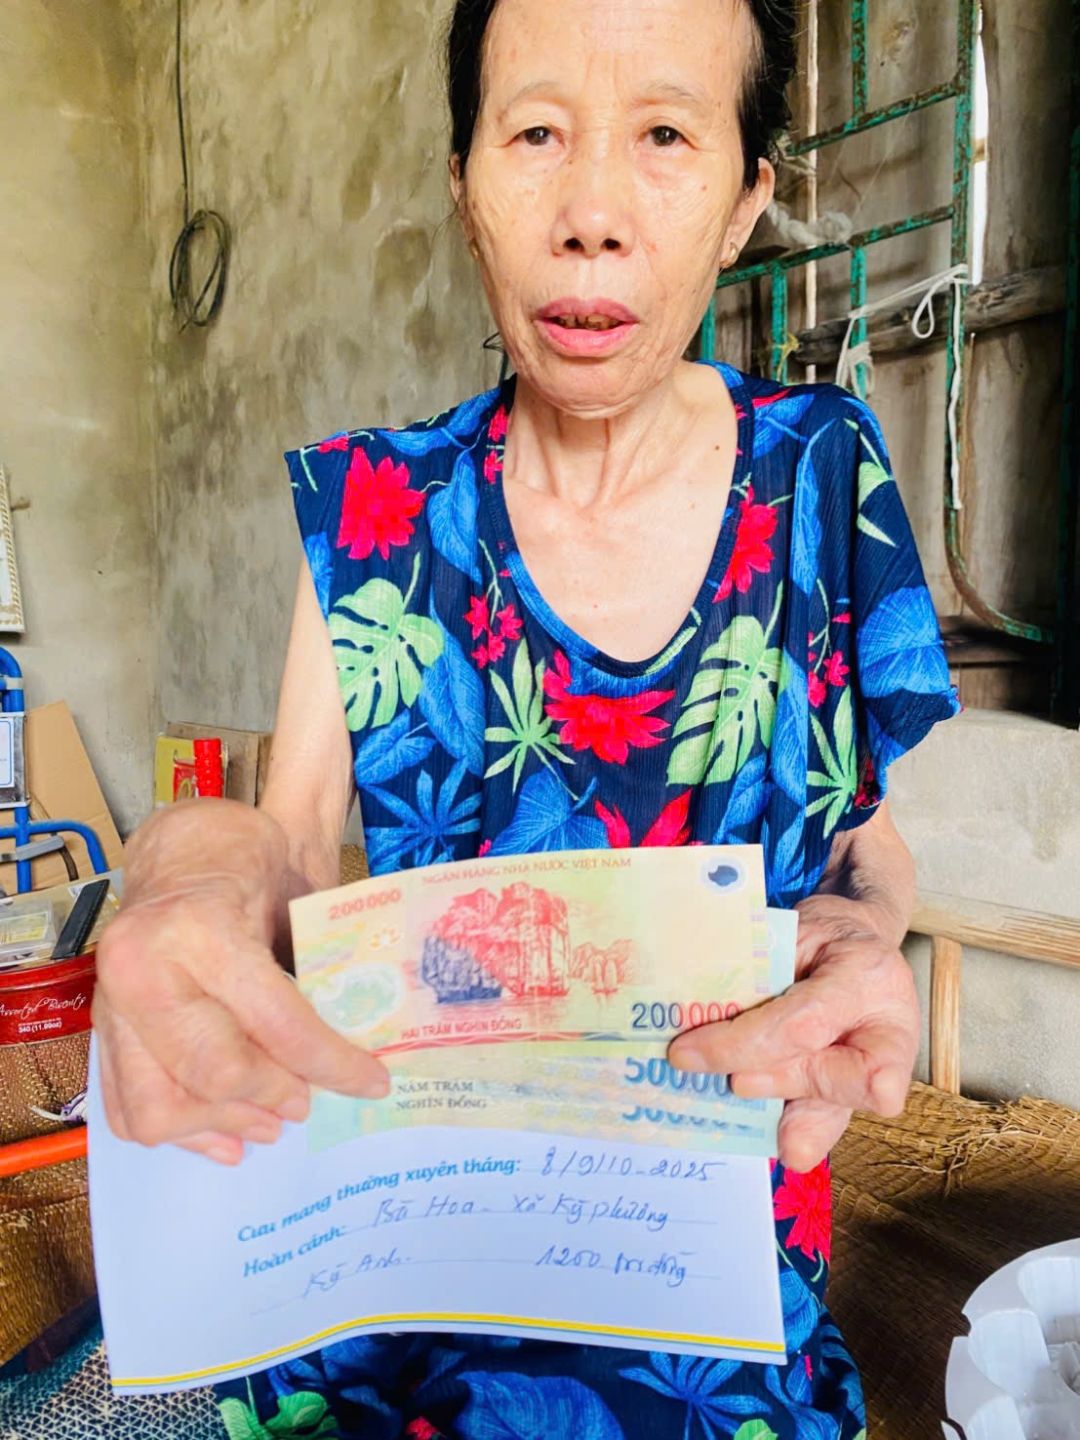 NGÂN HÀNG NHÀ NƯỚC VIỆT NAM
200000
HAI TRĂM NGHÌN ĐỒNG
200000
NĂM TRĂM
NGHÌN ĐỒNG
50000
Cưu mang thường xuyên tháng: 8/9/10-2025
Hoàn cảnh: Bà Hoa - Xã Kỳ phương
Kỳ Anh. 1200
Assorted Biscuits
340 (11.99oz)